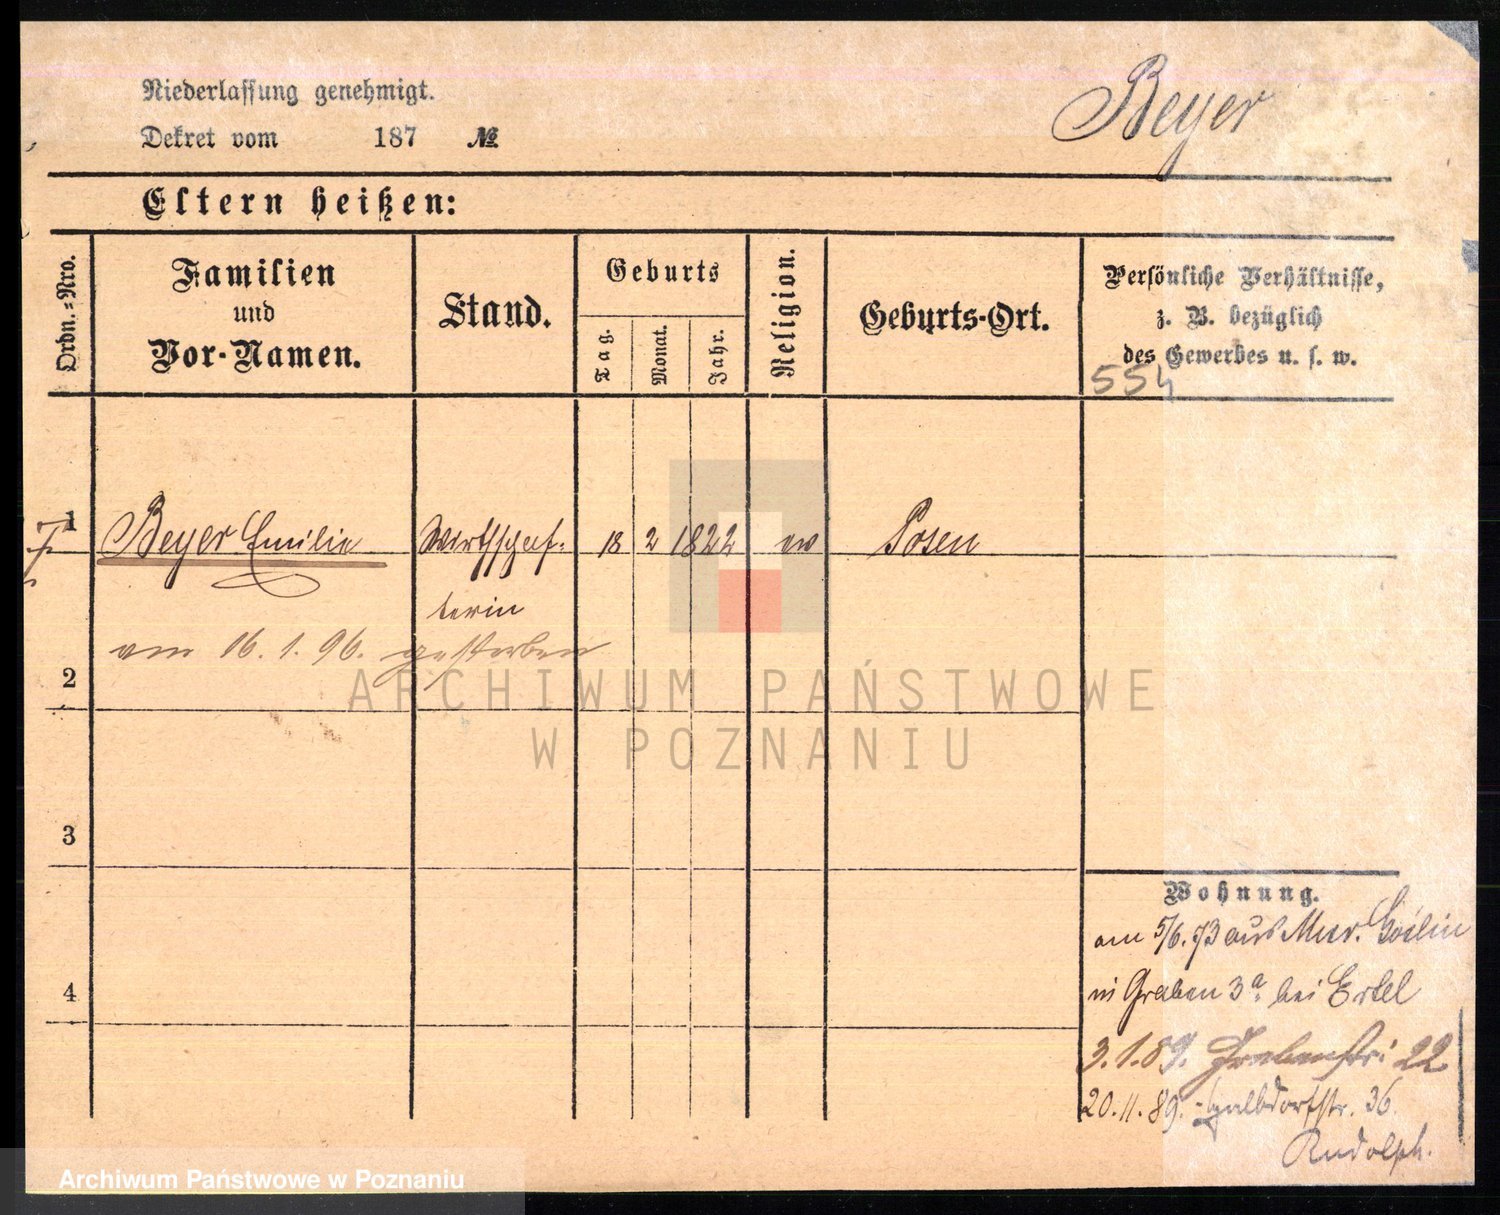 Niederlassung genehmigt.
Dekret vom 187 №
Beyer
Eltern heißen:
Ordn.-Nro.
Familien
und
Vor-Namen.
Stand.
Geburts
Tag.
Monat.
Jahr.
Religion.
Geburts-Ort.
Persönliche Verhältnisse,
z. B. bezüglich
des Gewerbes u. s. w.
554
1
Beyer Emilie Wirthschaf- 18 2 1822 ev Posen
terin
am 16. 1. 96. gestorben
2
ARCHIWUM PAŃSTWOWE
W POZNANIU
3
Wohnung.
am 5/6. 73 aus Mur. Goslin
in Graben 3a. bei Ertel
4
3. 1. 89. Grabenstr. 22
20. 11. 89. Halbdorfstr. 36.
Rudolph.
Archiwum Państwowe w Poznaniu